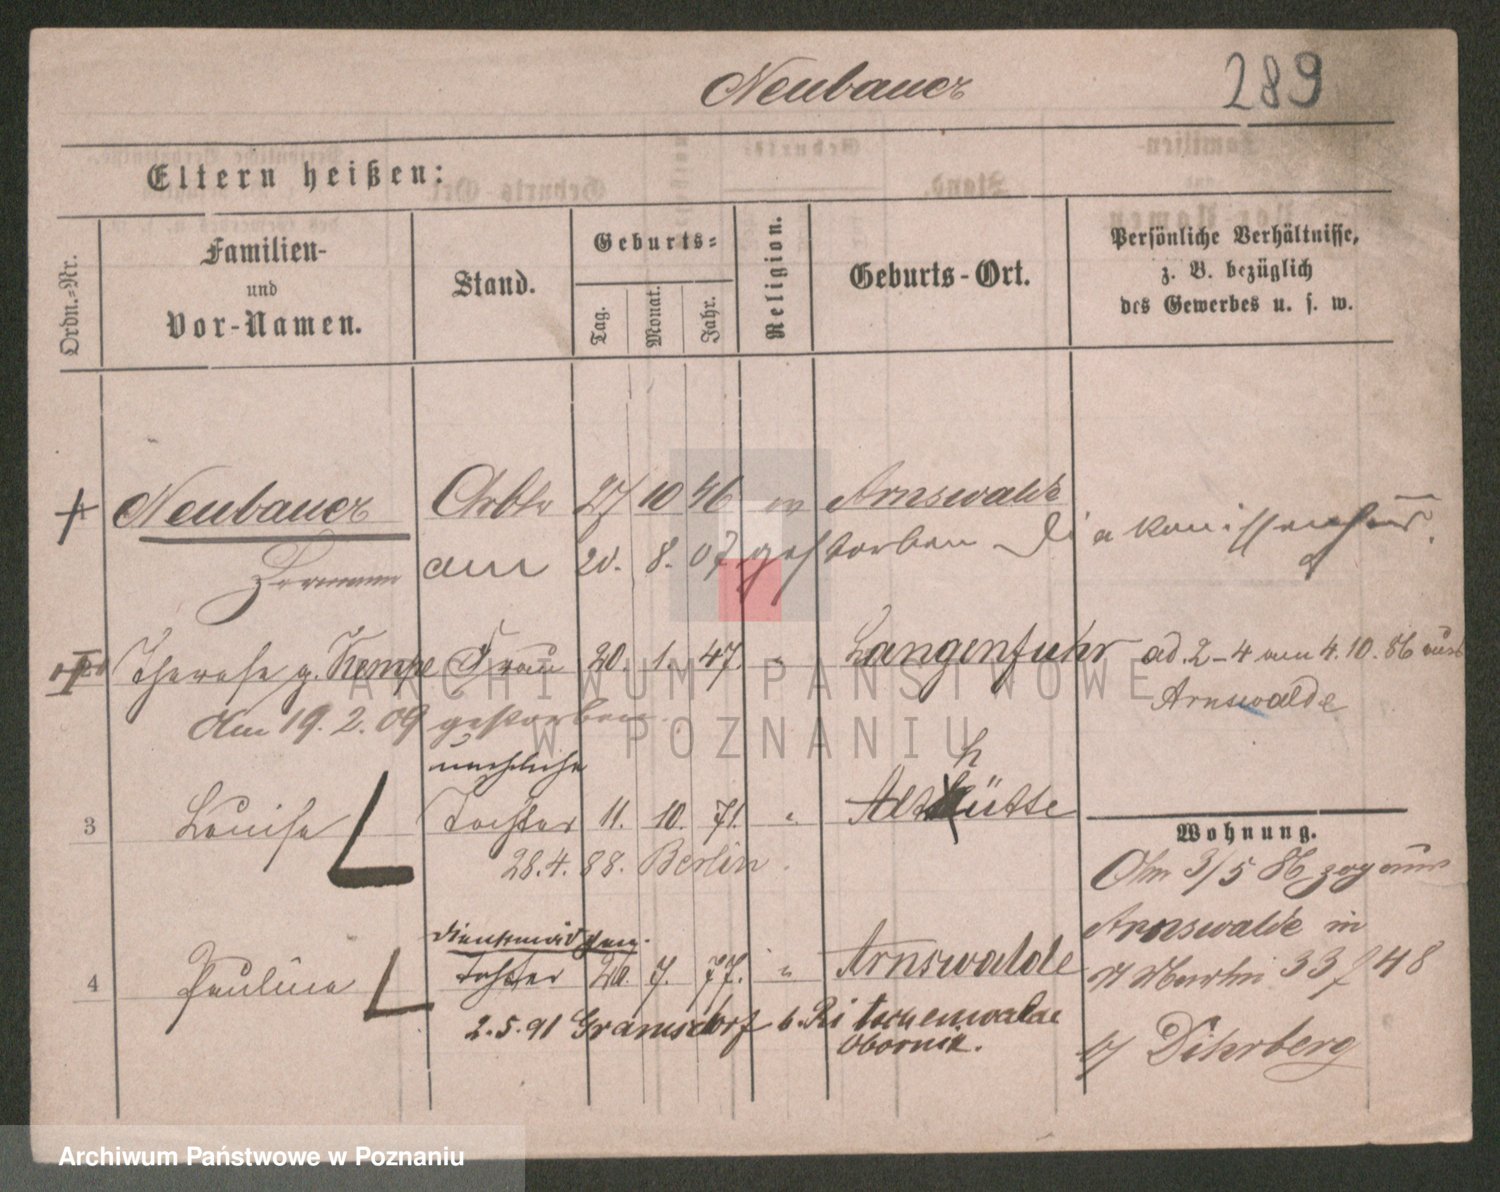 Neubauer
289
Eltern heißen:
Ordn.-Nr.
Familien-
und
Vor-Namen.
Stand.
Geburts-
Tag.
Monat.
Jahr.
Religion.
Geburts-Ort.
Persönliche Verhältnisse,
z. B. bezüglich
des Gewerbes u. s. w.
Neubauer Arbtr 27 10 46 ev Arnswalde
Hermann am 20. 8. 07 gestorben Diakonissenhaus.
Therese g. Kempe Frau 20. 1. 47. " Langenfuhr ad. 2-4 am 4.10.86 aus
Arnswalde
Am 19. 2. 09 gestorben.
uneheliche
3 Louise Tochter 11. 10. 71. " Althütte
h
28.4.88. Berlin.
Wohnung.
Am 3/5 86 zog aus
Arnswalde in
St Martin 33 48
b/ Dihrberg
Dienstmädchen.
4 Pauline Tochter 20. 7. 77. " Arnswalde
2.5.91 Gramsdorf b. Ritschenwalde
Obornik.
ARCHIWUM PAŃSTWOWE
W POZNANIU
Archiwum Państwowe w Poznaniu